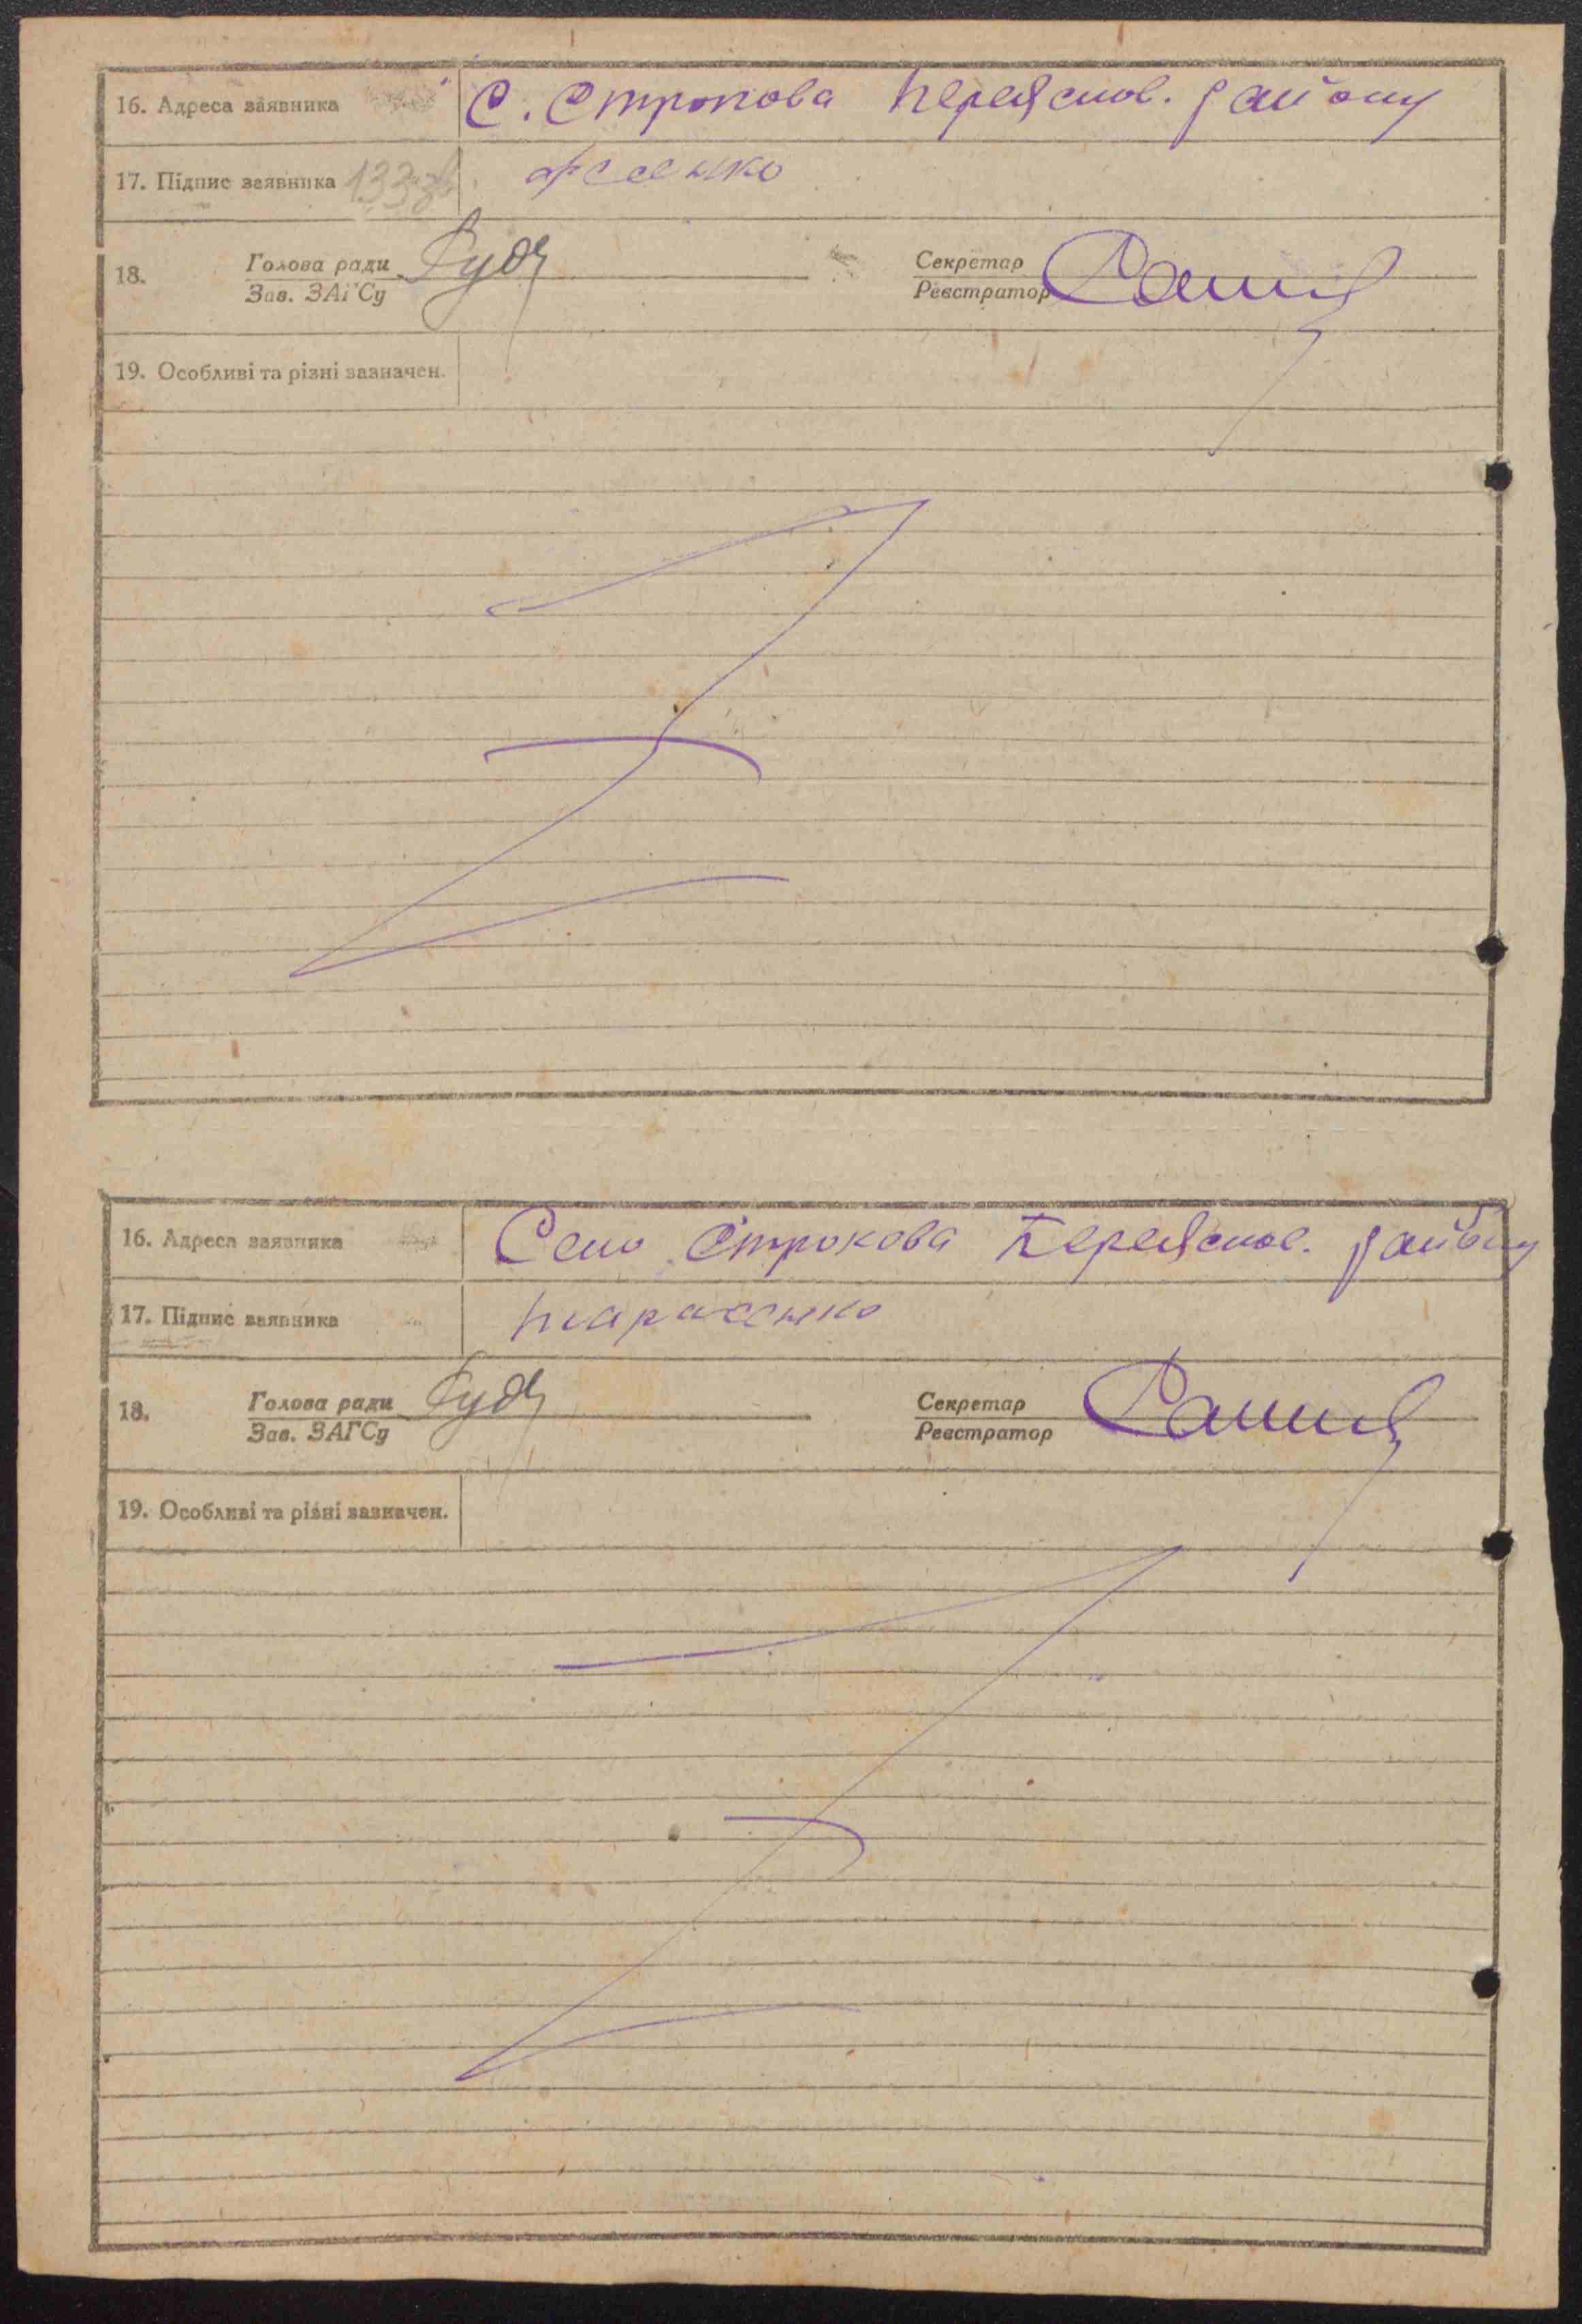 16. Адреса заявника С. Строкова Переяслов. району
17. Підпис заявника 133зв
18. Голова ради
Зав. ЗАГСу
Секретар
Реєстратор
19. Особливі та різні зазначен.
16. Адреса заявника Село Строкова Переяслов. району
17. Підпис заявника тарасенко
18. Голова ради
Зав. ЗАГСу
Секретар
Реєстратор
19. Особливі та різні зазначен.